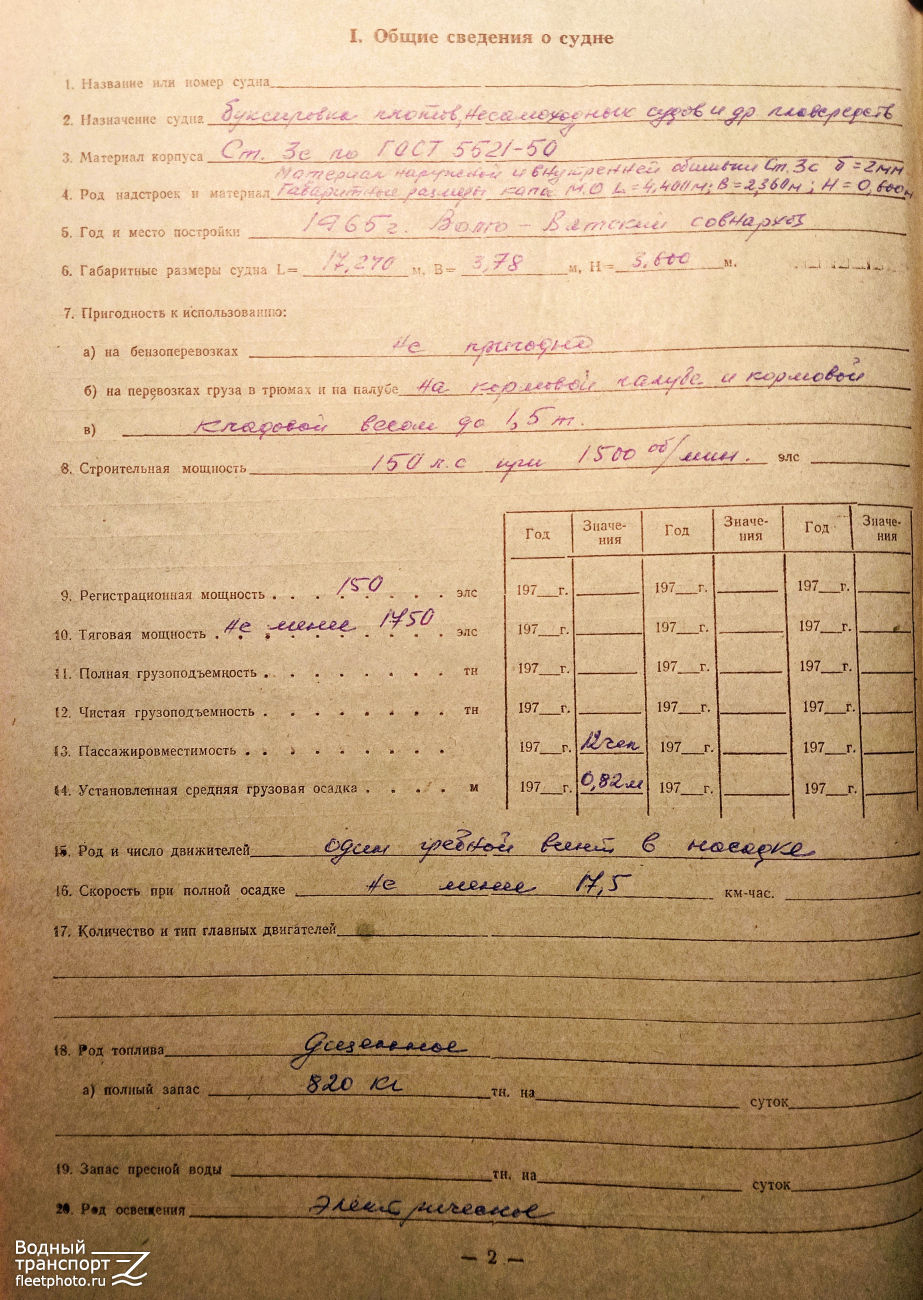 I. Общие сведения о судне
1. Название или номер судна
2. Назначение судна буксировка плотов, несамоходных судов и др. плавсредств
3. Материал корпуса Ст. 3с по ГОСТ 5521-50
Материал наружной и внутренней обшивки Ст. 3с δ = 2мм
4. Род надстроек и материал Габаритные размеры капа М.О L = 4,400м; B = 2,360м; H = 0,600м
5. Год и место постройки 1965г. Волго – Вятский совнархоз
6. Габаритные размеры судна L= 17,270 м, B= 3,78 м, H= 5,600 м.
7. Пригодность к использованию:
а) на бензоперевозках не пригодно
б) на перевозках груза в трюмах и на палубе на кормовой палубе и кормовой
в) кладовой весом до 1,5 т.
8. Строительная мощность 150 л.с при 1500 об/мин. элс
Год Значе- Год Значе- Год Значе-
ния ния ния
9. Регистрационная мощность . . 150 . . элс 197__г. 197__г. 197__г.
10. Тяговая мощность . не менее 1750 элс 197__г. 197__г. 197__г.
11. Полная грузоподъемность . . . . . . . . тн 197__г. 197__г. 197__г.
12. Чистая грузоподъемность . . . . . . . . тн 197__г. 197__г. 197__г.
13. Пассажировместимость . . . . . . . . 197__г. 12 чел 197__г. 197__г.
14. Установленная средняя грузовая осадка . . . . м 197__г. 0,82м 197__г. 197__г.
15. Род и число движителей один гребной винт в насадке
16. Скорость при полной осадке не менее 17,5 км-час.
17. Количество и тип главных двигателей
18. Род топлива дизельное
а) полный запас 820 кг тн, на суток
19. Запас пресной воды тн, на суток
20. Род освещения электрическое
— 2 —
Водный
транспорт
fleetphoto.ru